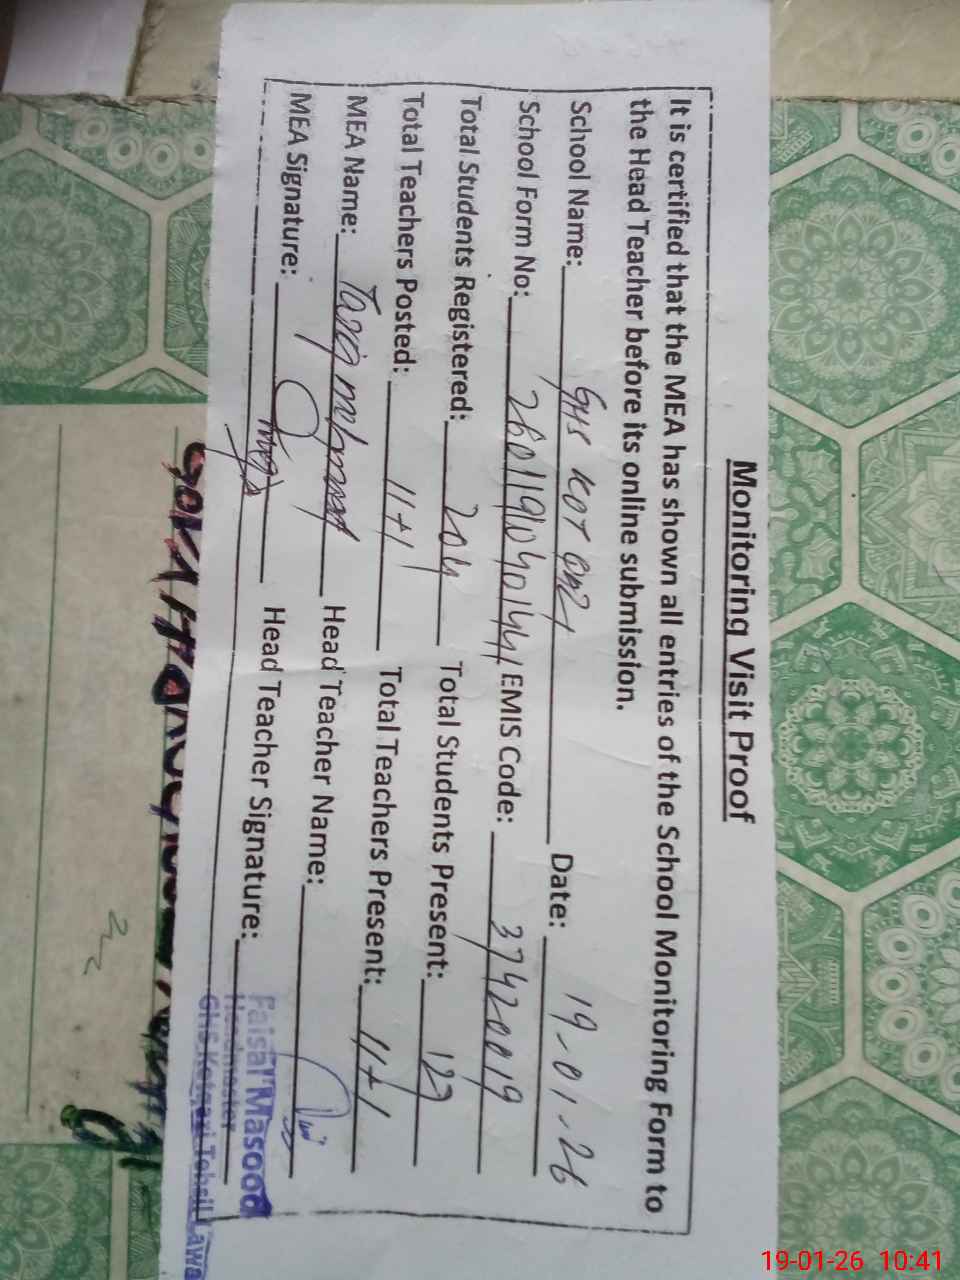 Monitoring Visit Proof
It is certified that the MEA has shown all entries of the School Monitoring Form to
the Head Teacher before its online submission.
School Name: GHS KOT Qazi Date: 19-01-26
School Form No: EMIS Code: 37420019
Total Students Registered: 204 Total Students Present: 127
Total Teachers Posted: 11+1 Total Teachers Present: 11+1
MEA Name: Tariq mehmood Head Teacher Name:
MEA Signature: Head Teacher Signature:
Faisal Masood
Headmaster
GHS Kotqazi Tehsil Lawa
19-01-26 10:41